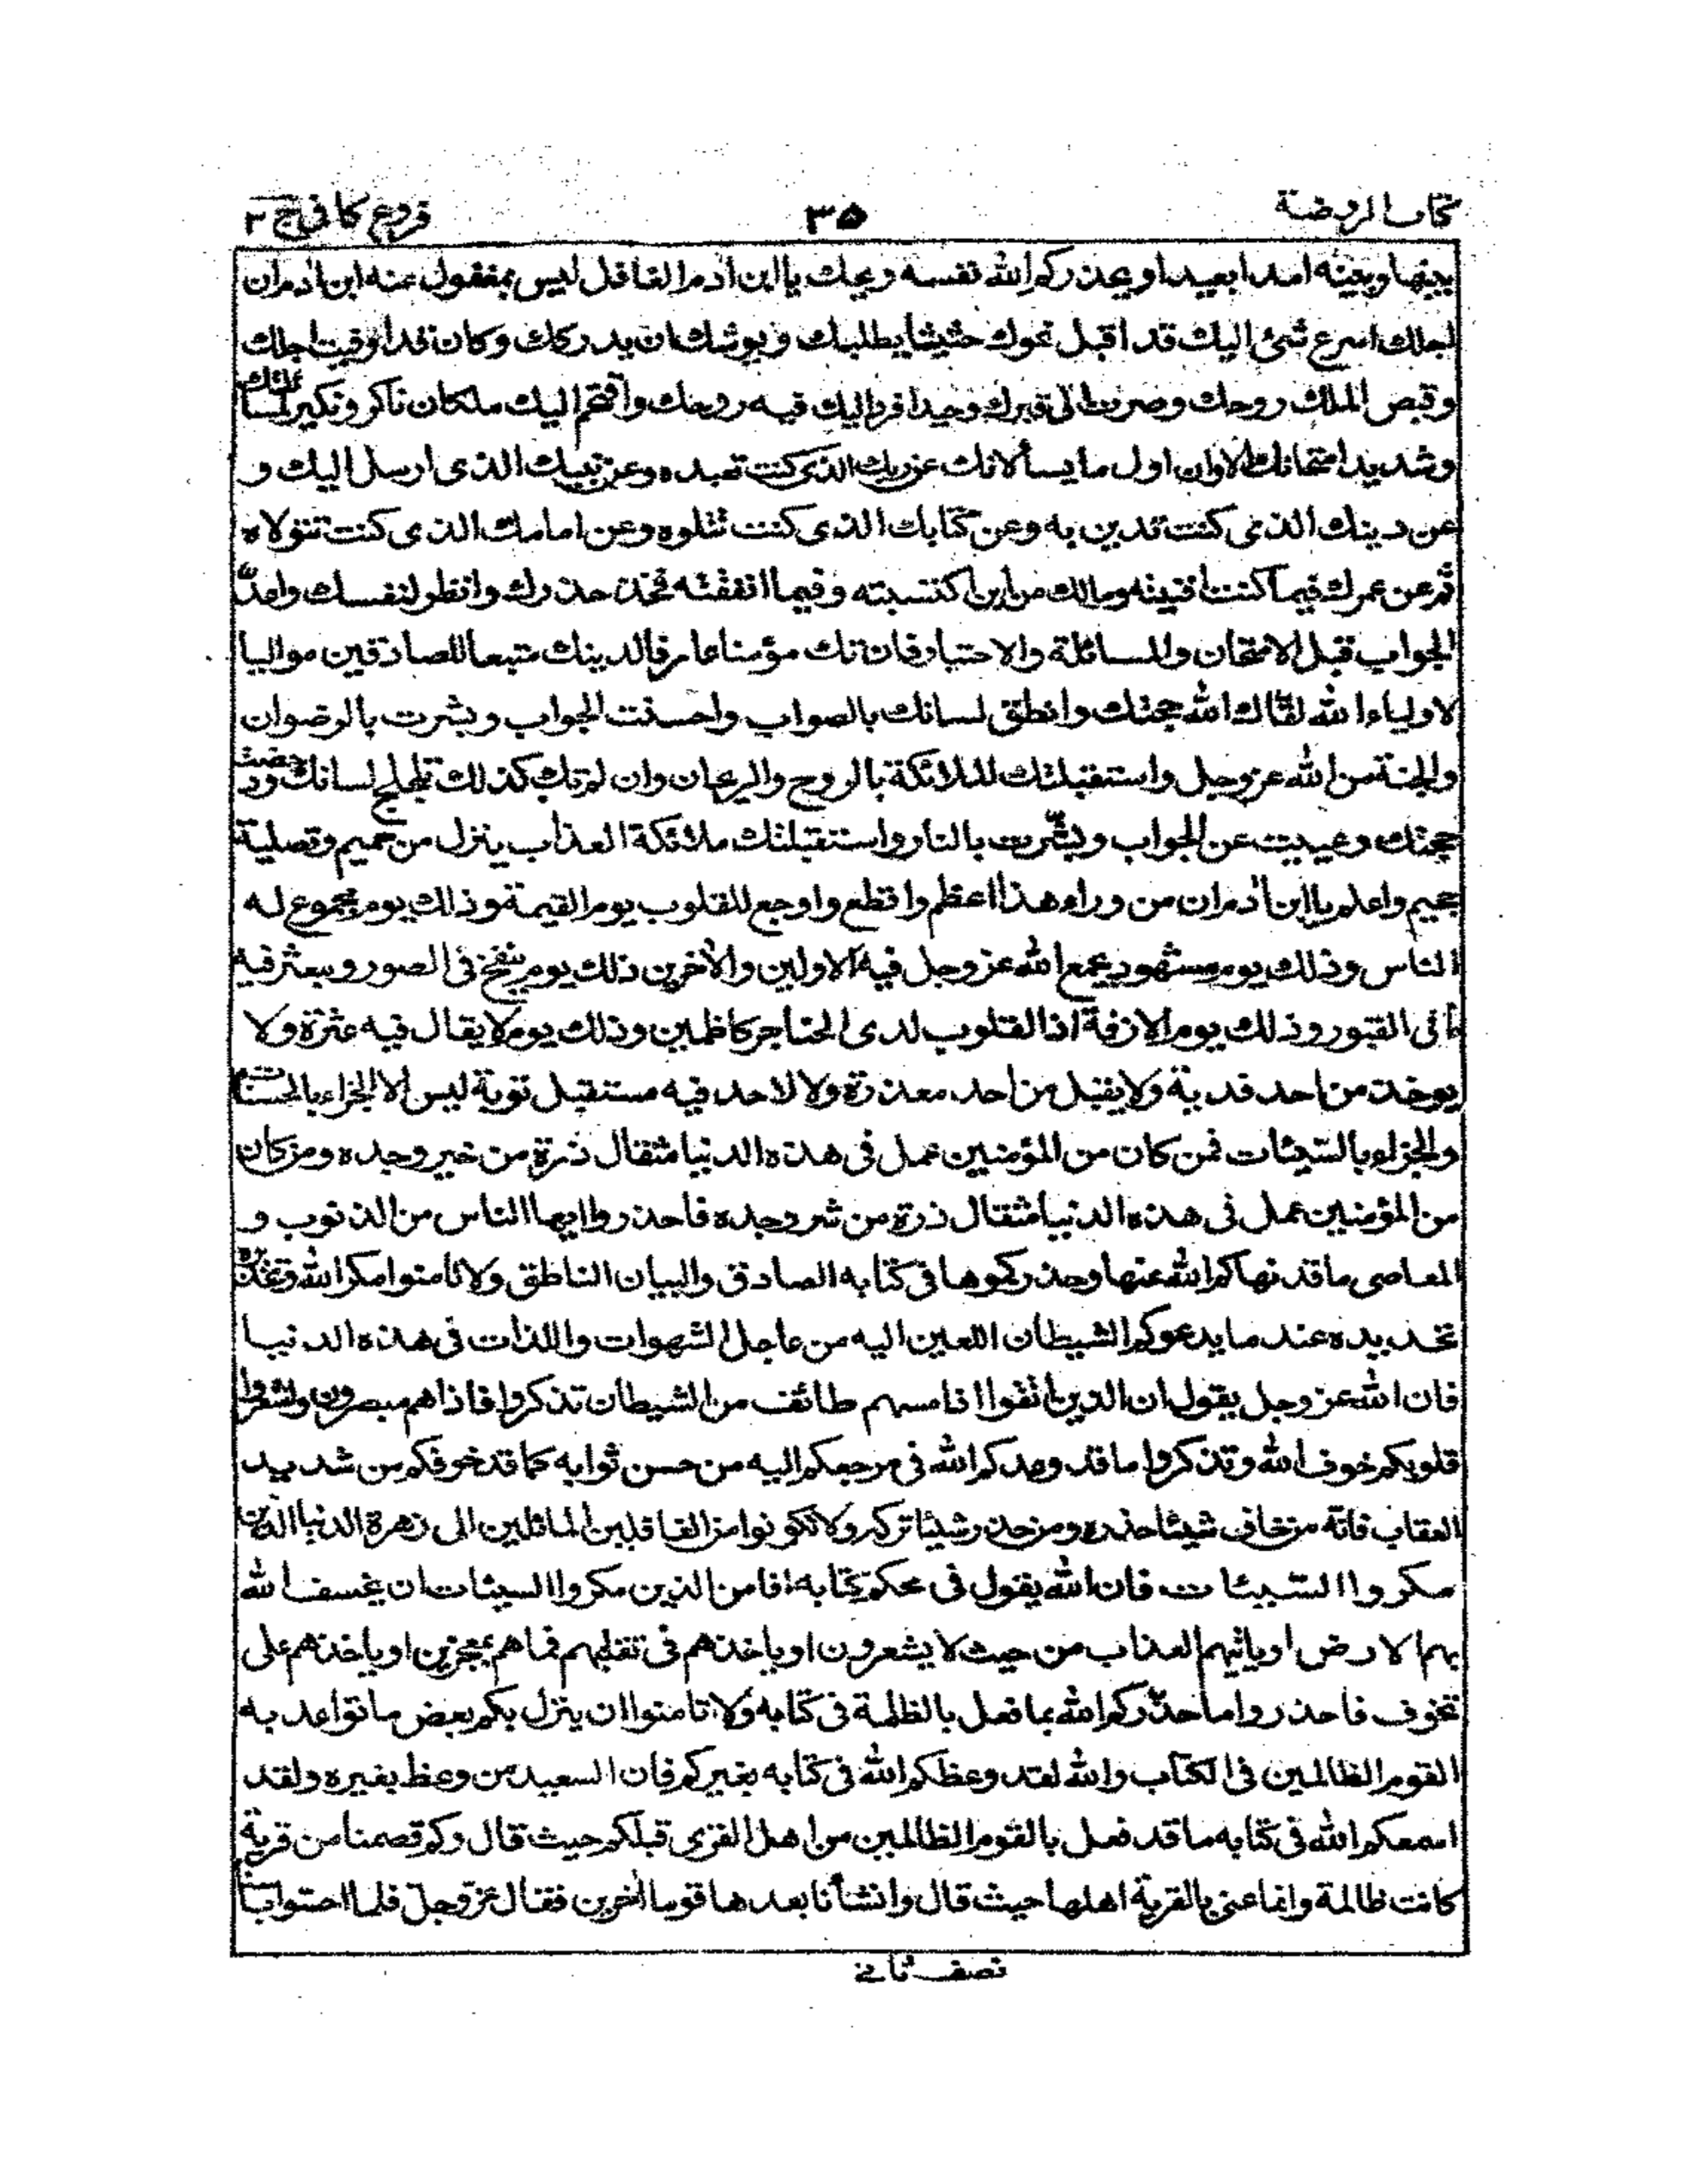 كتاب الروضة ٣٥ فروع كافى ج ٣
بينها وبينه امدا بعيدا ويحذركم الله نفسه ويحك يا ابن ادم الغافل ليس بمغفول عنه ابن ادم ان
اجلك اسرع شئ اليك قد اقبل نحوك حثيثا يطلبك ويوشك ان يدركك وكان قد اوفيت اجلك
وقبض الملك روحك وصرت الى قبرك وحيدا فرد اليك فيه روحك واقتحم اليك ملكان ناكر ونكير لمسائلتك
وشديد امتحانك الا وان اول ما يسألانك عن ربك الذى كنت تعبده وعن نبيك الذى ارسل اليك و
عن دينك الذى كنت تدين به وعن كتابك الذى كنت تتلوه وعن امامك الذى كنت تتولاه
ثم عن عمرك فيما كنت افنيته ومالك من اين اكتسبته وفيما انفقته فخذ حذرك وانظر لنفسك واعدّ
الجواب قبل الامتحان والمسائلة والاختبار فان تك مؤمنا عارفا لدينك متبعا للصادقين مواليا
لاولياء الله لقّاك الله حجتك وانطق لسانك بالصواب واحسنت الجواب وبشرت بالرضوان
والجنة من الله عز وجل واستقبلتك الملائكة بالروح والريحان وان لم تك كذلك تلجلج لسانك ودحضت
حجتك وعييت عن الجواب وبشّرت بالنار واستقبلتك ملائكة العذاب ينزل من حميم وتصلية
جحيم واعلم يا ابن ادم ان من وراء هذا اعظم وافظع واوجع للقلوب يوم القيمة وذلك يوم مجموع له
الناس وذلك يوم مشهود يجمع الله عز وجل فيه الاولين والآخرين ذلك يوم ينفخ فى الصور ويبعثر فيه
ما فى القبور وذلك يوم الازفة اذ القلوب لدى الحناجر كاظمين وذلك يوم لا يقال فيه عثرة ولا
يوخذ من احد فدية ولا يقبل من احد معذرة ولا لاحد فيه مستقبل توبة ليس الا الجزاء بالحسنات
والجزاء بالسّيئات فمن كان من المؤمنين عمل فى هذه الدنيا مثقال ذرة من خير وجده ومن كان
من المؤمنين عمل فى هذه الدنيا مثقال ذرة من شر وجده فاحذروا ايها الناس من الذنوب و
المعاصى ما قد نهاكم الله عنها وحذركموها فى كتابه الصادق والبيان الناطق ولا تامنوا مكر الله وتحذيره
تحديده عند ما يدعوكم الشيطان اللعين اليه من عاجل الشهوات واللذات فى هذه الدنيا
فان الله عز وجل يقول ان الذين اتقوا اذا مسهم طائف من الشيطان تذكروا فاذا هم مبصرون واشعروا
قلوبكم خوف الله وتذكروا ما قد وعدكم الله فى مرجعكم اليه من حسن ثوابه كما قد خوفكم من شديد
العقاب فانه من خاف شيئا حذره ومن حذر شيئا تركه ولا تكونوا من الغافلين المائلين الى زهرة الدنيا الذين
مكروا السّيئات فان الله يقول فى محكم كتابه افامن الذين مكروا السيئات ان يخسف الله
بهم الارض او ياتيهم العذاب من حيث لا يشعرون او ياخذهم فى تقلبهم فما هم بمعجزين او ياخذهم على
تخوف فاحذروا ما حذّركم الله بما فعل بالظلمة فى كتابه ولا تامنوا ان ينزل بكم بعض ما تواعد به
القوم الظالمين فى الكتاب والله لقد وعظكم الله فى كتابه بغيركم فان السعيد من وعظ بغيره ولقد
اسمعكم الله فى كتابه ما قد فعل بالقوم الظالمين من اهل القرى قبلكم حيث قال وكم قصمنا من قرية
كانت ظالمة وانما عنى بالقرية اهلها حيث قال وانشأنا بعدها قوما آخرين فقال عز وجل فلما احسّوا باسنا
نصف ثانى